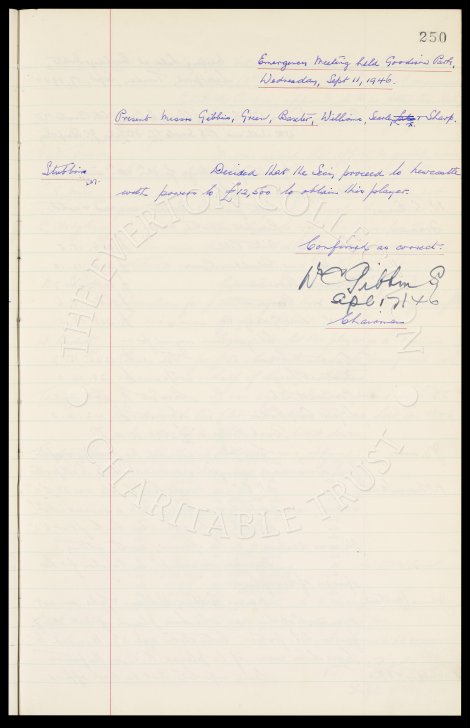 250
Emergency Meeting held Goodison Park,
Wednesday, Sept 11, 1946.
Present Messrs Gibbins, Green, Baxter, Williams, Searle & Sharp.
Stubbins
Decided that the Sec. proceed to Newcastle
with powers to £12,500 to obtain this player.
Confirmed as correct.
W C Gibbins
17/46
Chairman
THE EVERTON COLLECTION
CHARITABLE TRUST